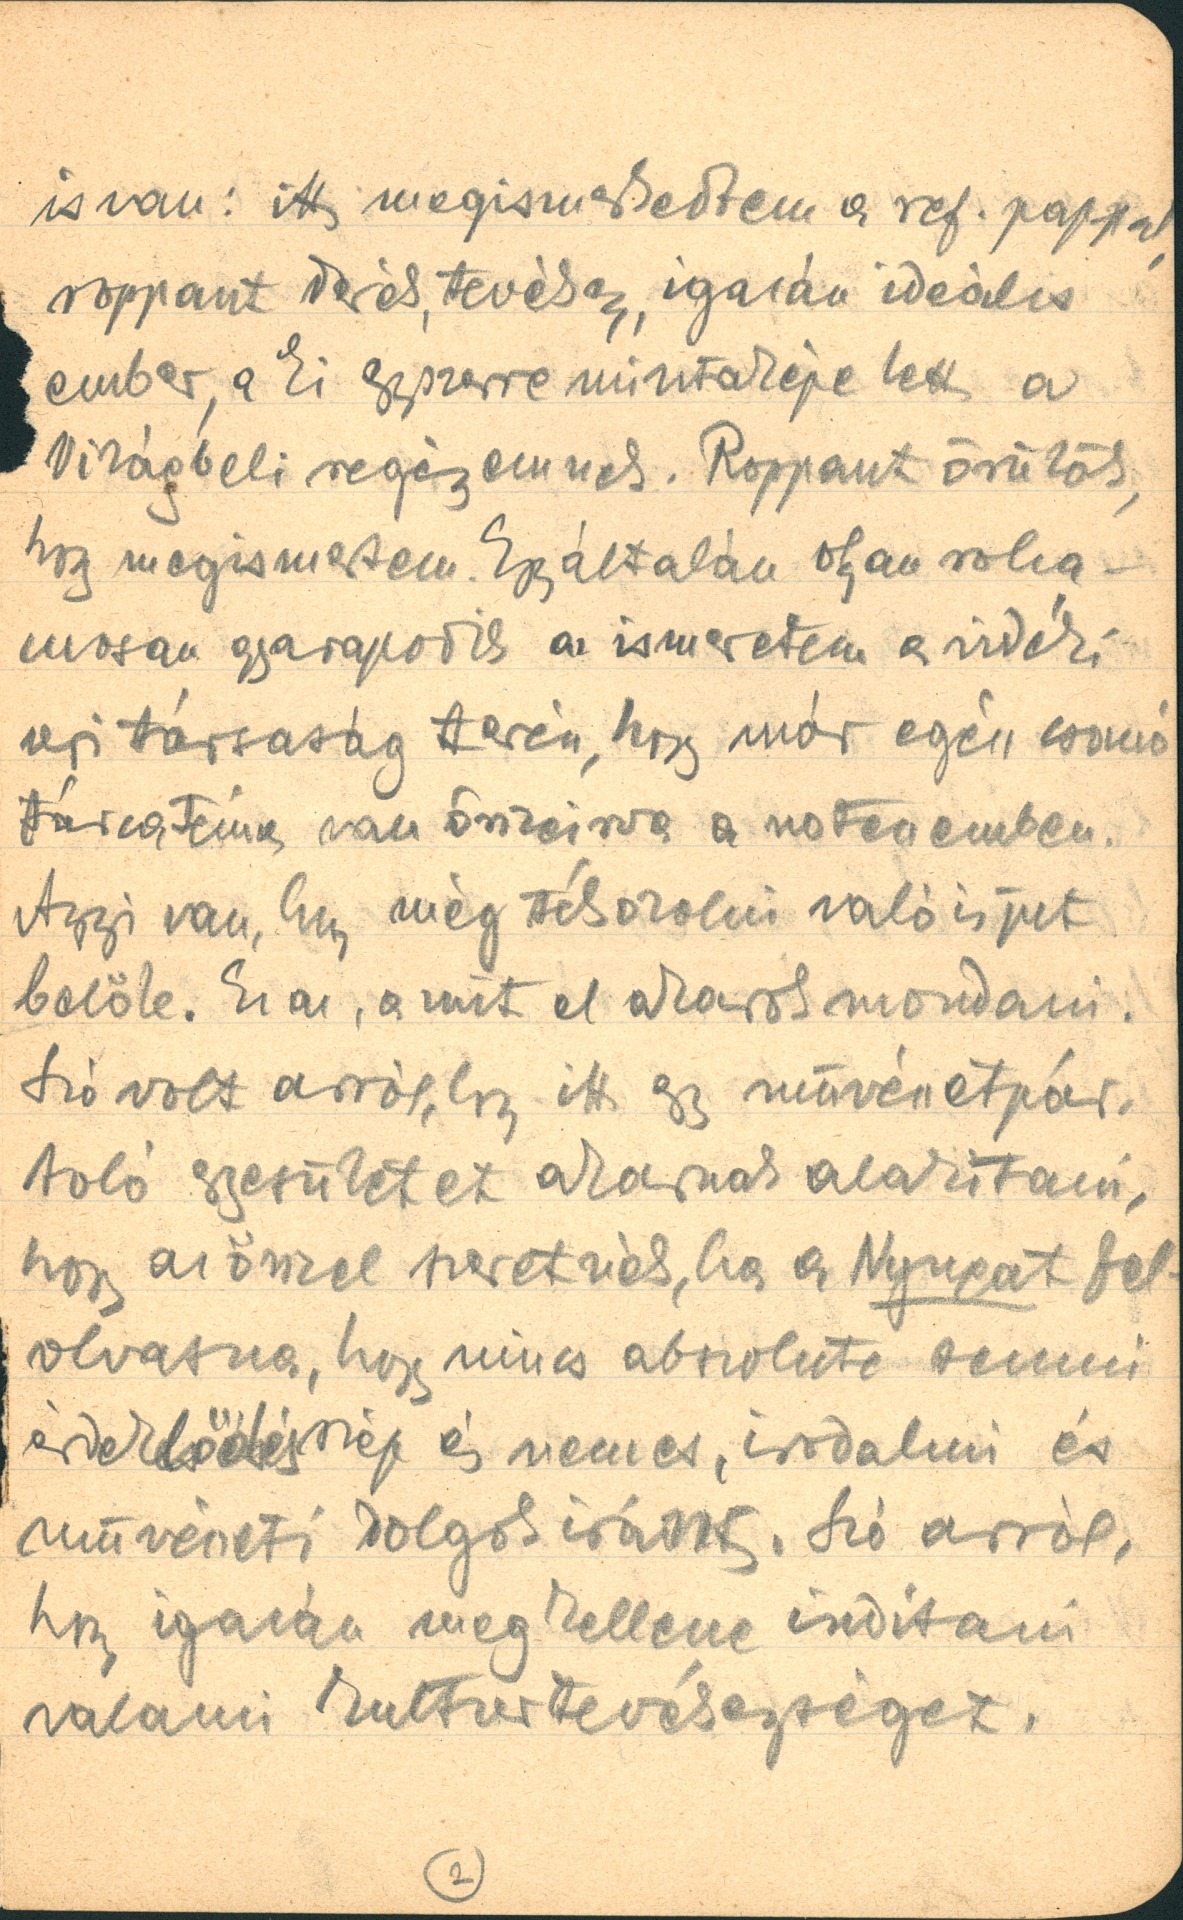 is van: itt megismerkedtem a ref. pappal,
roppant derék, tevékeny, igazán ideális
ember, a ki egyszerre mintaképe lett a
Virágbeli regényemnek. Roppant örülök,
hogy megismertem. Egyáltalán olyan roha-
mosan gyarapodik az ismeretem a vidéki
uri társaság terén, hogy már egész csomó
tárcatéma van összeirva a noteszemben.
Annyi van, hogy még tékozolni való is jut
belőle. Ez az, a mit el akarok mondani.
Szó volt arról, hogy itt egy müvészetpár-
toló egyesületet akarnak alakitani,
hogy az ősszel szeretnék, ha a Nyugat fel-
olvasna, hogy nincs abszolute semmi
érdeklődés szép és nemes, irodalmi és
müvészeti dolgok iránt. Szó arról,
hogy igazán meg kellene inditani
valami kulturtevékenységet.
2